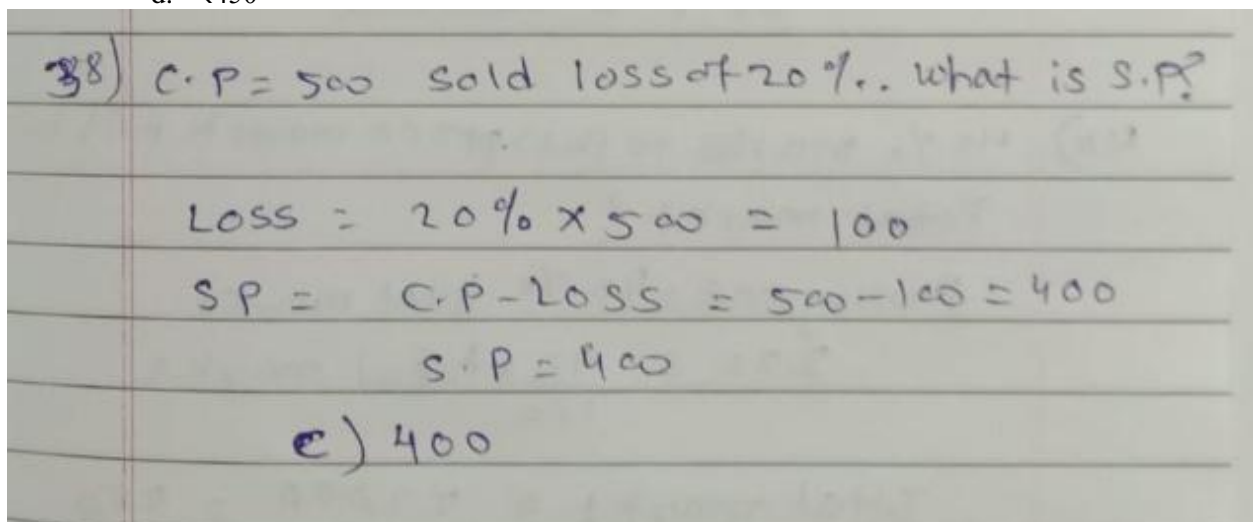 38) C.P = 500 sold loss of 20%. what is S.P?
LOSS = 20% × 500 = 100
SP = C.P - LOSS = 500 - 100 = 400
S.P = 400
c) 400